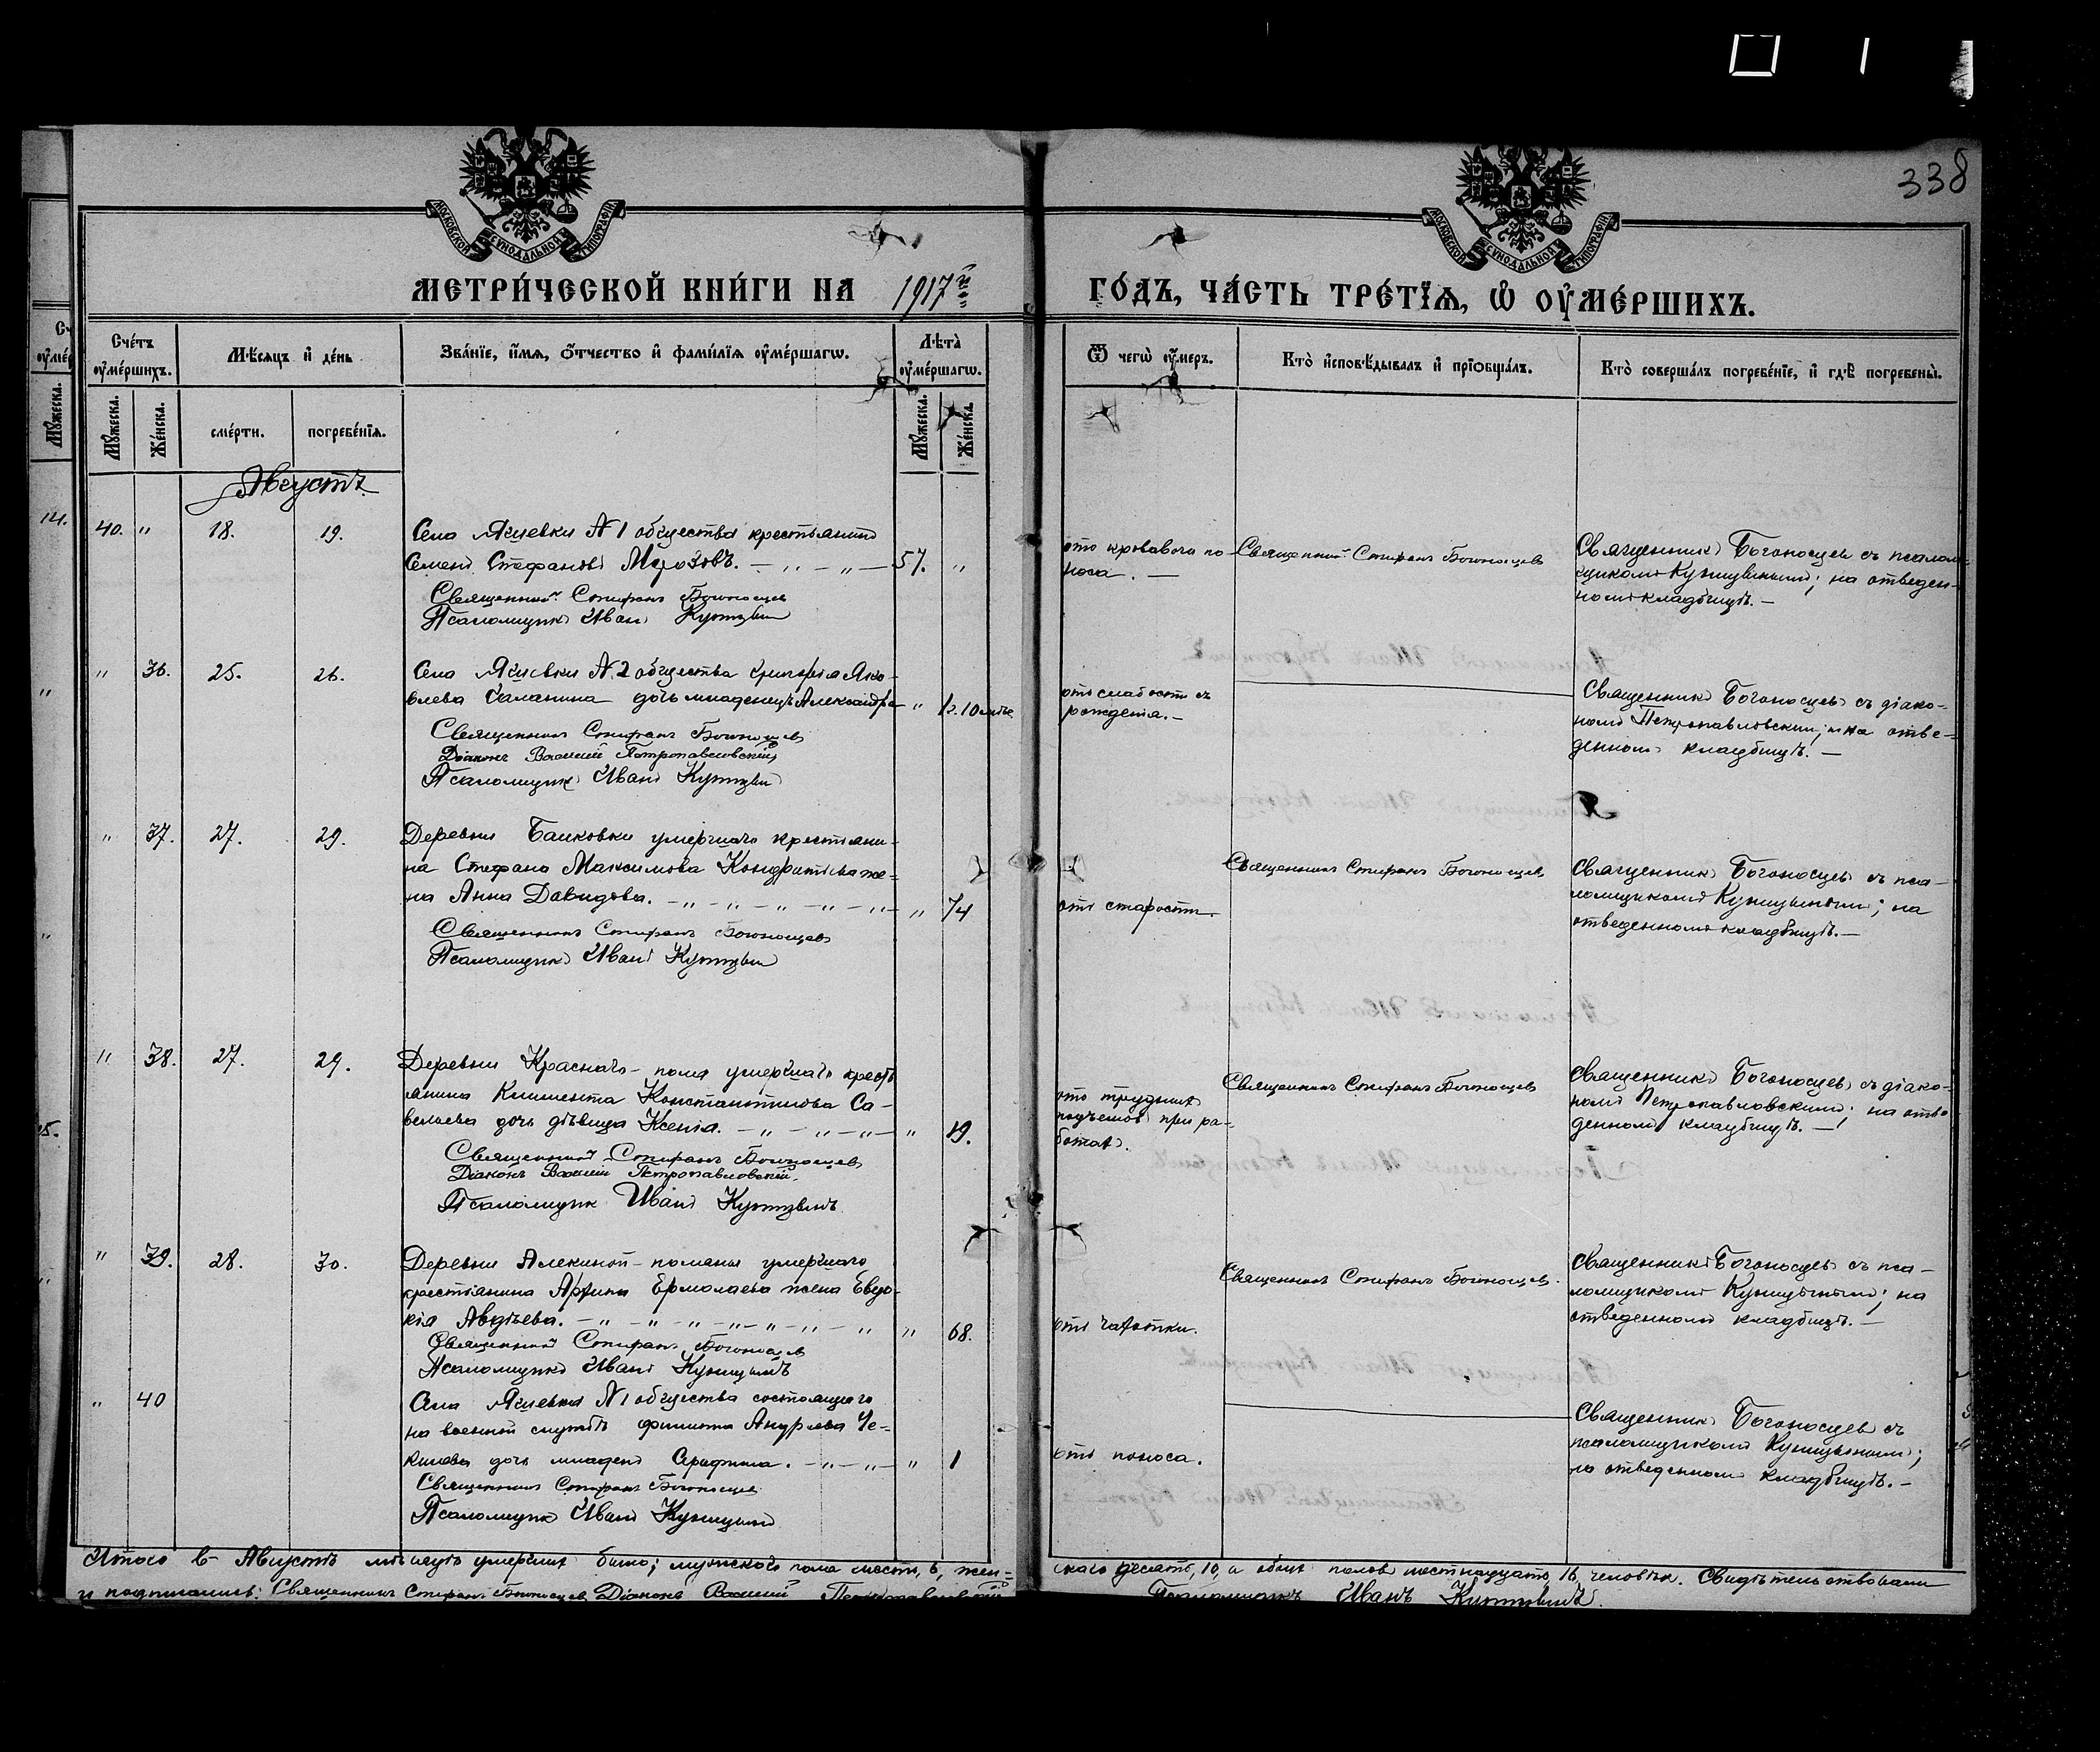 338
МОСКОВСКОЙ СУНОДАЛЬНОЙ ТИПОГРАФІИ
МОСКОВСКОЙ СУНОДАЛЬНОЙ ТИПОГРАФІИ
МЕТРИ́ЧЕСКОЙ КНИ́ГИ НА 1917й
ГО́ДЪ, ЧА́СТЬ ТРЕ́ТІѦ, Ѡ҆ ОУ҆МЕ́РШИХЪ.
Сче́тъ оу҆ме́ршихъ.
Мꙋ́жеска.
Же́нска.
Мѣ́сяцъ и҆ де́нь
сме́рти.
погребе́нїя.
Зва́нїе, и҆́мя, ѻ҆́тчество и҆ фами́лїя оу҆ме́ршагѡ.
Лѣ́та оу҆ме́ршагѡ.
Мꙋ́жеска.
Же́нска.
Ѿ чегѡ̀ оу҆́меръ.
Кто̀ и҆сповѣ́дывалъ и҆ прїѡбща́лъ.
Кто̀ соверша́лъ погребе́нїе, и҆ гдѣ̀ погребены̀.
Августъ
40. " 18. 19.
Села Ячиевки № 1 общества крестьянинъ
Семенъ Стефановъ Морозовъ. 57. "
Священникъ Спиранъ Богоносцевъ
Псаломщикъ Иванъ
отъ кроваваго по-
носа.
Священникъ Богоносцевъ
Священникъ Богоносцевъ съ псалом-
щикомъ на отведен-
номъ кладбищѣ.
" 36. 25. 26.
Села № 2 общества Григорія Яко-
влева дочь младенецъ Александра " 10
Священникъ Богоносцевъ
Діаконъ Василій Петропавловскій
Псаломщикъ Иванъ
отъ слабости съ
рожденія.
Священникъ Богоносцевъ съ діако-
номъ Петропавловскимъ; на отве-
денномъ кладбищѣ.
" 37. 27. 29.
Деревни умершаго крестьяни-
на Стефана Максимова Кондратьева же-
на Анна Давидова. " 74
Священникъ Богоносцевъ
Псаломщикъ Иванъ
отъ старости.
Священникъ Богоносцевъ
Священникъ Богоносцевъ съ пса-
ломщикомъ на
отведенномъ кладбищѣ.
" 38. 27. 29.
Деревни Краснаго-поля умершаго кресть
янина Климента Константинова Са-
вельева дочь дѣвица Ксенія. " 19.
Священникъ Богоносцевъ
Діаконъ Василій Петропавловскій.
Псаломщикъ Иванъ
отъ трудныхъ
подъемовъ при ра-
ботахъ.
Священникъ Богоносцевъ
Священникъ Богоносцевъ съ діако-
номъ Петропавловскимъ; на отве-
денномъ кладбищѣ.
" 39. 28. 30.
Деревни Алекиной-поляны умершаго
крестьянина Ермолаева жена Евдо-
кія Авдѣева. " 68.
Священникъ Богоносцевъ
Псаломщикъ Иванъ
отъ чахотки.
Священникъ Богоносцевъ.
Священникъ Богоносцевъ съ пса-
ломщикомъ на
отведенномъ кладбищѣ.
" 40
Села № 1 общества состоящаго
на военной службѣ Филиппа Андреева Че-
кинова дочь младен. Серафима. " 1
Священникъ Богоносцевъ
Псаломщикъ Иванъ
отъ поноса.
Священникъ Богоносцевъ съ
псаломщикомъ
на отведенномъ кладбищѣ.
Итого въ Августѣ мѣсяцѣ умершихъ было; мужского пола шесть, 6, жен-
скаго десять, 10, а обоихъ половъ шестнадцать, 16, человѣкъ. Свидѣтельствовали
и подписались: Священникъ Богоносцевъ Діаконъ Василій Петропавловскій
Псаломщикъ Иванъ